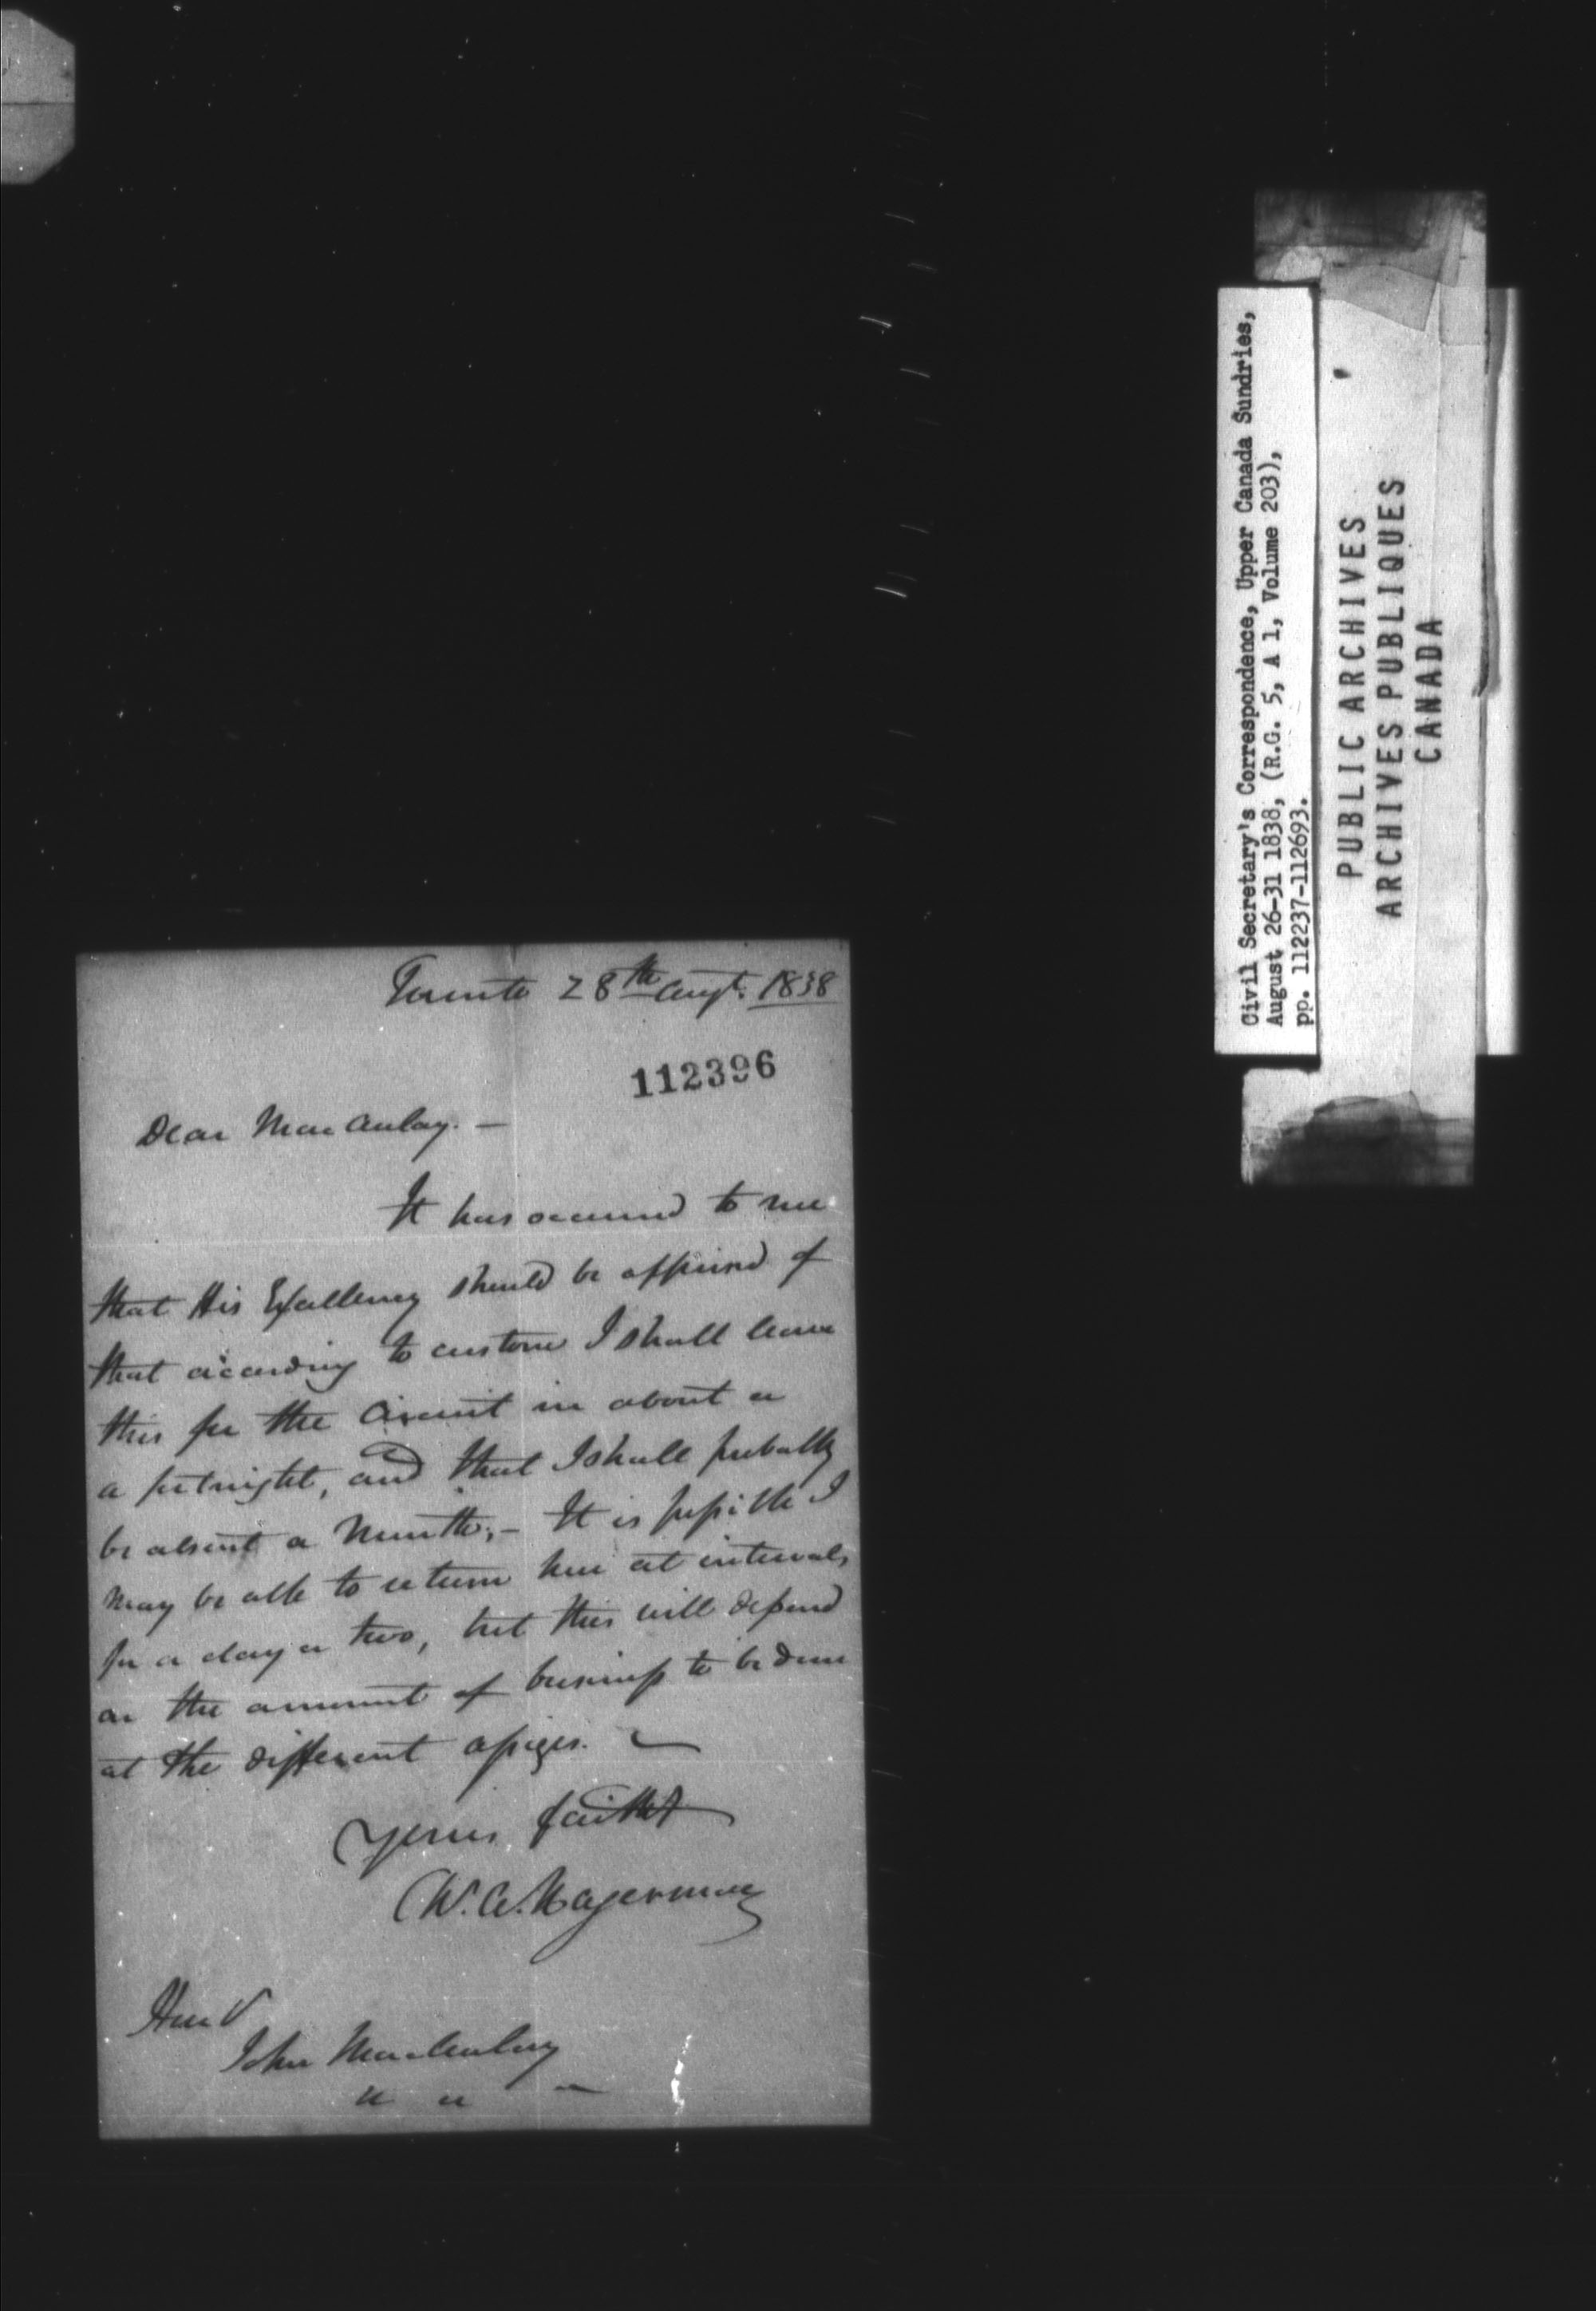 Toronto 28th Augt. 1838
112396
Dear Macaulay. —
It has occurred to me
that His Excellency should be apprised of
that according to custom I shall leave
this for the Circuit in about a
a fortnight, and that I shall probably
be absent a Month. – It is possible I
may be able to return here at intervals
for a day or two, but this will depend
on the amount of business to be done
at the different assizes. —
Yours faithf
C. A. Hagerman
Honl
John Macaulay
Civil Secretary's Correspondence, Upper Canada Sundries,
August 26-31 1838, (R.G. 5, A 1, Volume 203),
pp. 112237-112693.
PUBLIC ARCHIVES
ARCHIVES PUBLIQUES
CANADA